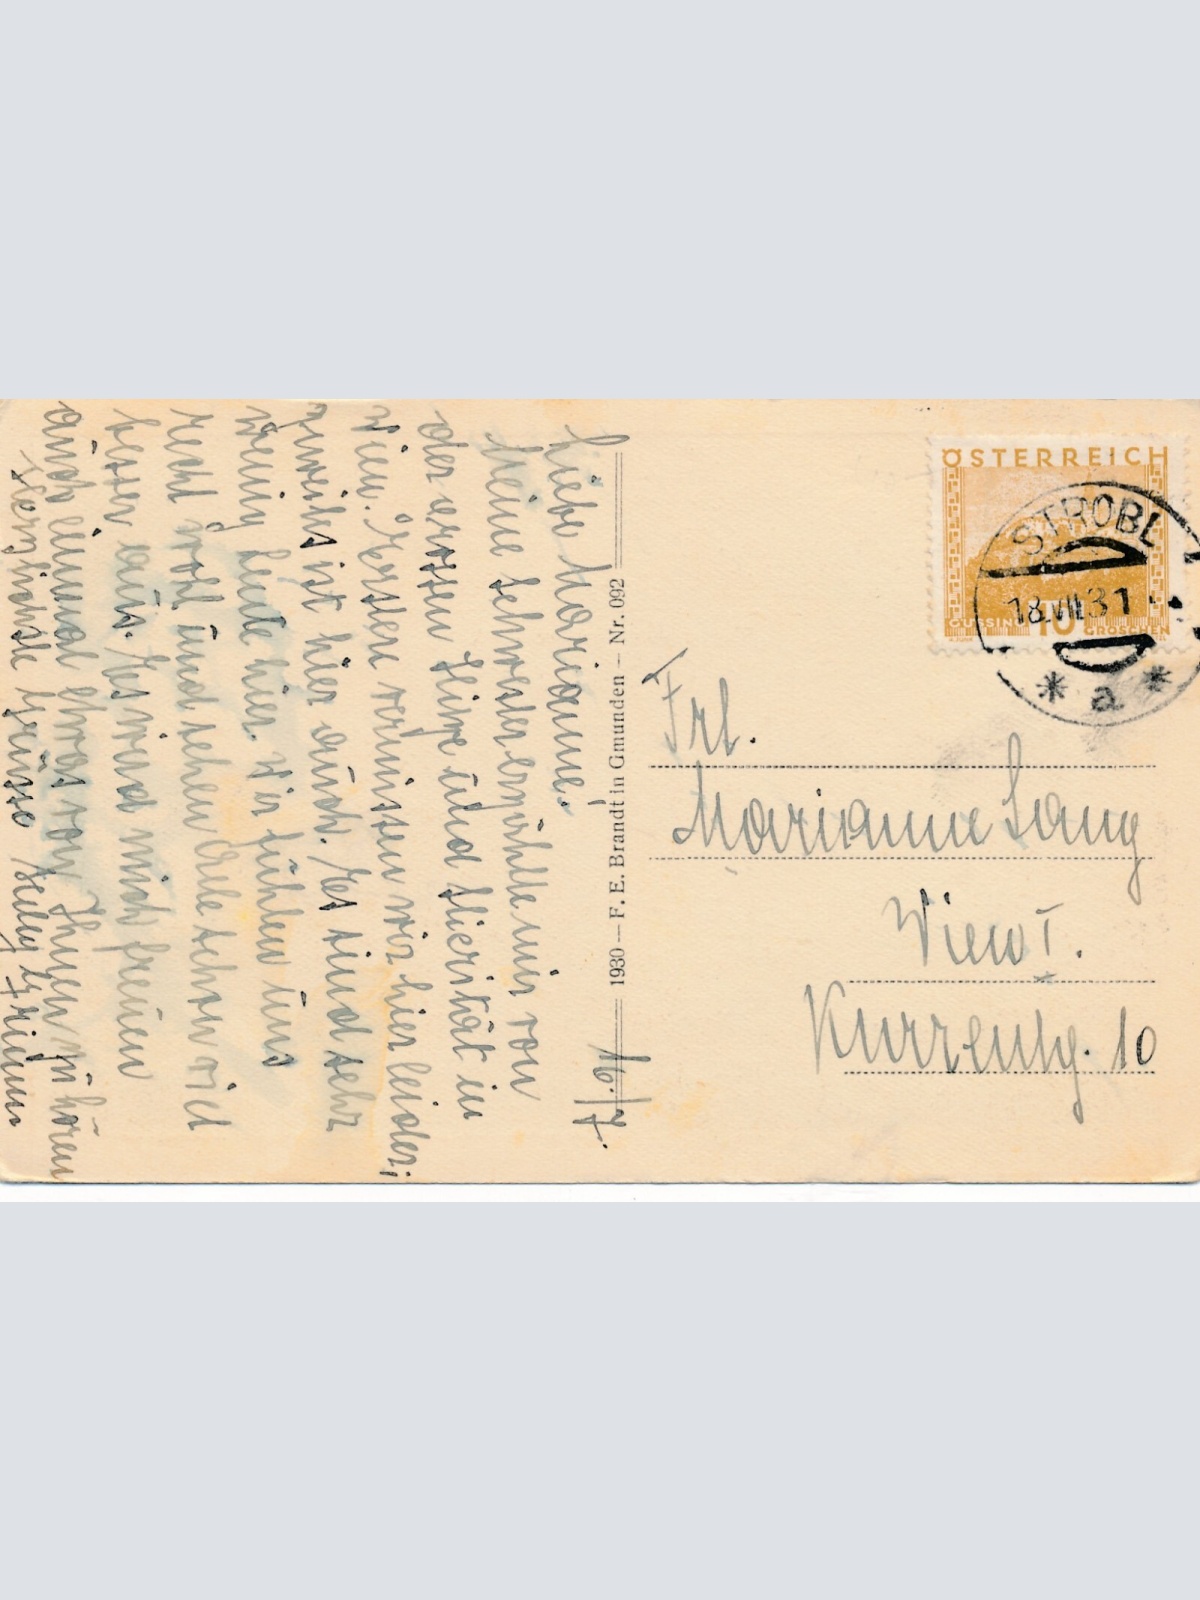 Liebe Marianne!
Meine Schwester erzählte mir von
der grossen Hitze und in
Wien. Erstere vermissen wir hier leider;
ist hier auch. Es sind sehr
wenig Leute hier. Wir fühlen uns
recht wohl und sehen alle schon viel
besser aus. Es wird mich freuen
auch einmal etwas von Ihnen zu hören
Herzlichste Grüsse
1930 – F. E. Brandt in Gmunden – Nr. 092
ÖSTERREICH
GÜSSING 10 GROSCHEN
STROBL
18.VII.31
* a *
Frl.
Marianne Lang
Wien I.
Kurrentg. 10